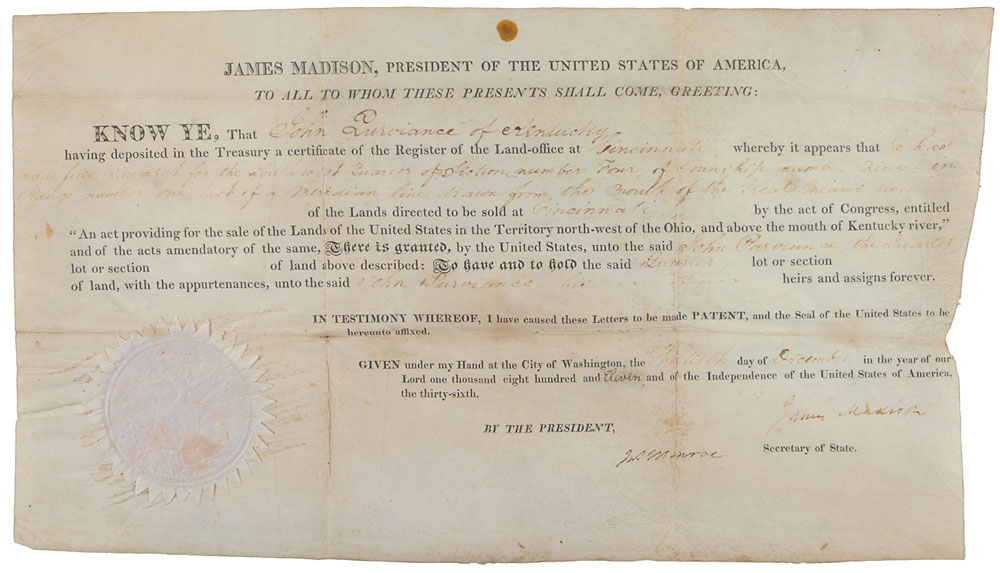 JAMES MADISON, PRESIDENT OF THE UNITED STATES OF AMERICA,
TO ALL TO WHOM THESE PRESENTS SHALL COME, GREETING:
KNOW YE, That John Purviance of Kentucky
having deposited in the Treasury a certificate of the Register of the Land-office at Cincinnati whereby it appears that he has
made full payment for the west Quarter of Section number Four of Township number Nine in
Range number one East of a Meridian line drawn from the Mouth of the Great Miami
of the Lands directed to be sold at Cincinnati by the act of Congress, entitled
“An act providing for the sale of the Lands of the United States in the Territory north-west of the Ohio, and above the mouth of Kentucky river,”
and of the acts amendatory of the same, There is granted, by the United States, unto the said John Purviance the Quarter
lot or section of land above described: To have and to hold the said Quarter lot or section
of land, with the appurtenances, unto the said John Purviance his heirs and assigns forever.
IN TESTIMONY WHEREOF, I have caused these Letters to be made PATENT, and the Seal of the United States to be
hereunto affixed.
GIVEN under my Hand at the City of Washington, the day of December in the year of our
Lord one thousand eight hundred and Eleven and of the Independence of the United States of America,
the thirty-sixth.
James Madison
BY THE PRESIDENT,
Jas Monroe Secretary of State.